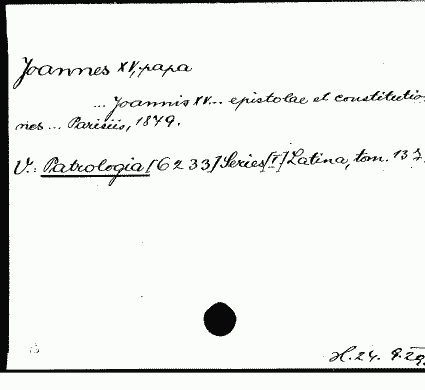 Joannes XV, papa
... Joannis XV... epistolae et constitutio
nes ... Parisiis, 1879.
V.: Patrologia [6233] Series [I] Latina, tom. 137.
H. 24.